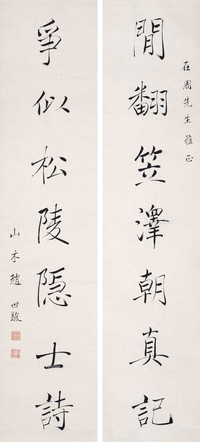 在周先生雅正
閒翻笠澤朝真記
爭似松陵隱士詩
山木趙世駿